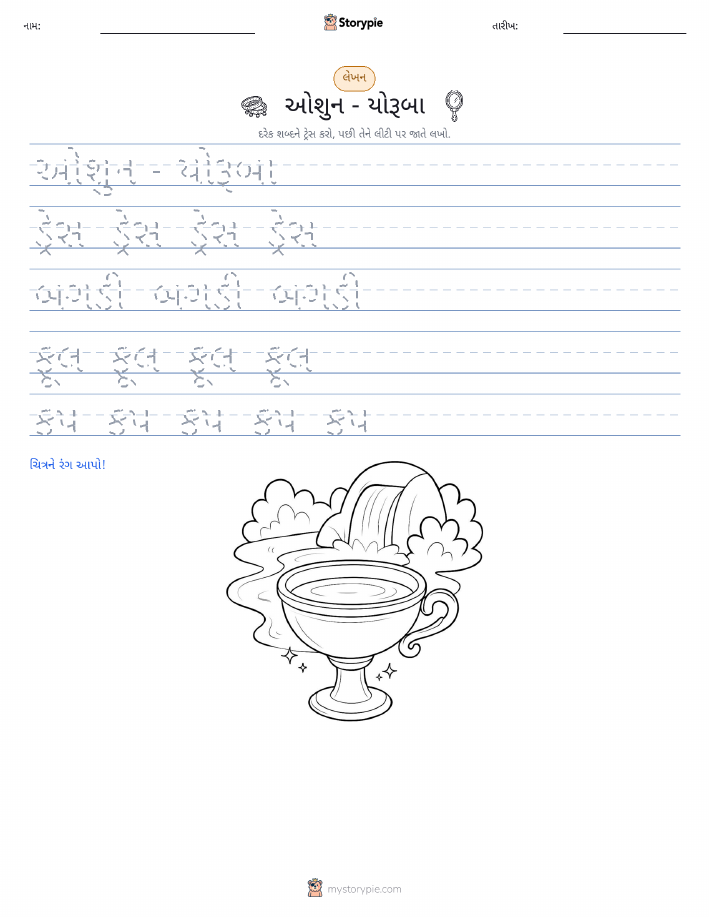 નામ:
Storypie
તારીખ:
લેખન
ઓશુન - યોરૂબા
દરેક શબ્દને ટ્રેસ કરો, પછી તેને લીટી પર જાતે લખો.
ઓશુન - યોરૂબા
ડ્રેસ ડ્રેસ ડ્રેસ ડ્રેસ
બંગડી બંગડી બંગડી
ફૂલ ફૂલ ફૂલ ફૂલ
કપ કપ કપ કપ કપ
ચિત્રને રંગ આપો!
mystorypie.com